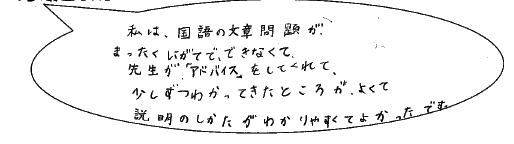 私は、国語の文章問題が、
まったくにがてで、できなくて、
先生が「アドバイス」をしてくれて、
少しずつわかってきたところが、よくて
説明のしかたがわかりやすくてよかったです